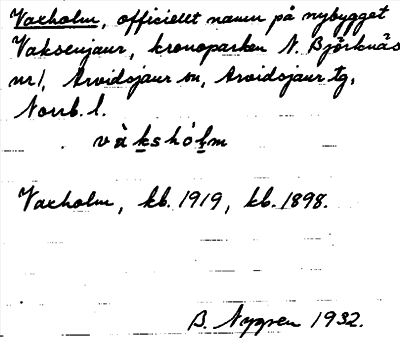 Vaxholm, officiellt namn på nybygget
Vaksenjaur, kronoparken N. Björknäs
nr 1, Arvidsjaur sn, Arvidsjaur tg,
Norrb. l.
vàkshólm
Vaxholm, kb. 1919, kb. 1898.
B. Nygren 1932.